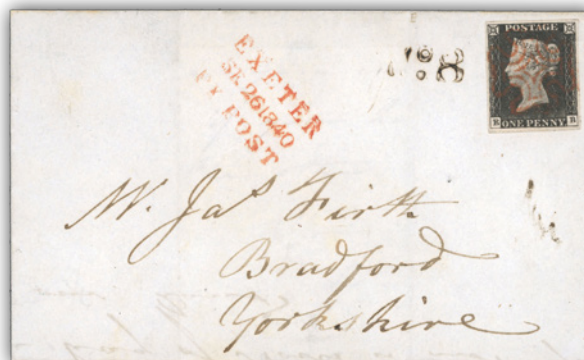 EXETER
SE 26 1840
PY POST
No. 8
POSTAGE
ONE PENNY
Mr. Jas Firth
Bradford
Yorkshire